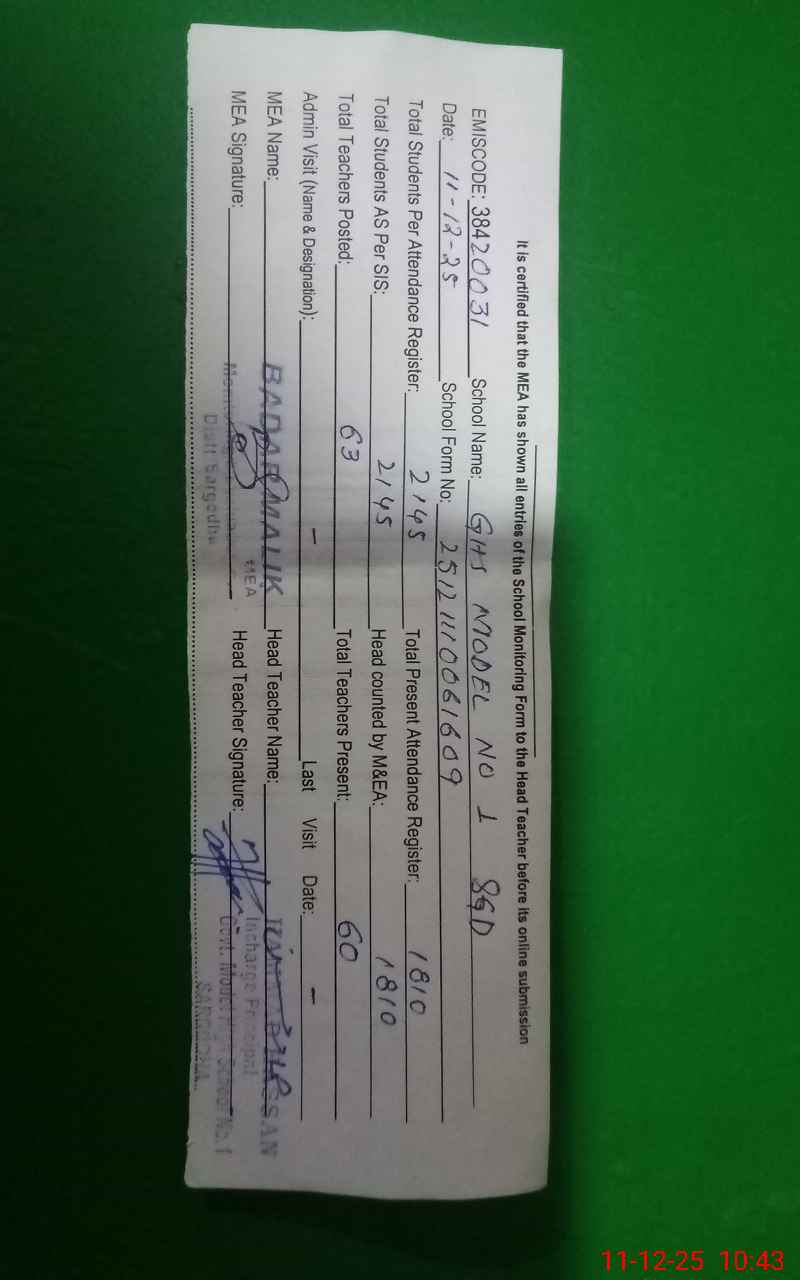 It is certified that the MEA has shown all entries of the School Monitoring Form to the Head Teacher before its online submission
EMISCODE: 38420031 School Name: GHS MODEL NO 1 SGD
Date: 11-12-25 School Form No: 2512111006 1609
Total Students Per Attendance Register: 2145 Total Present Attendance Register: 1810
Total Students AS Per SIS: 2145 Head counted by M&EA: 1810
Total Teachers Posted: 63 Total Teachers Present: 60
Admin Visit (Name & Designation): - Last Visit Date: -
MEA Name: BADAR MALIK Head Teacher Name:
MEA
MEA Signature: Head Teacher Signature:
Incharge Principal
Distt Sargodha
Govt. Model High School No.1
SARGODHA
11-12-25 10:43